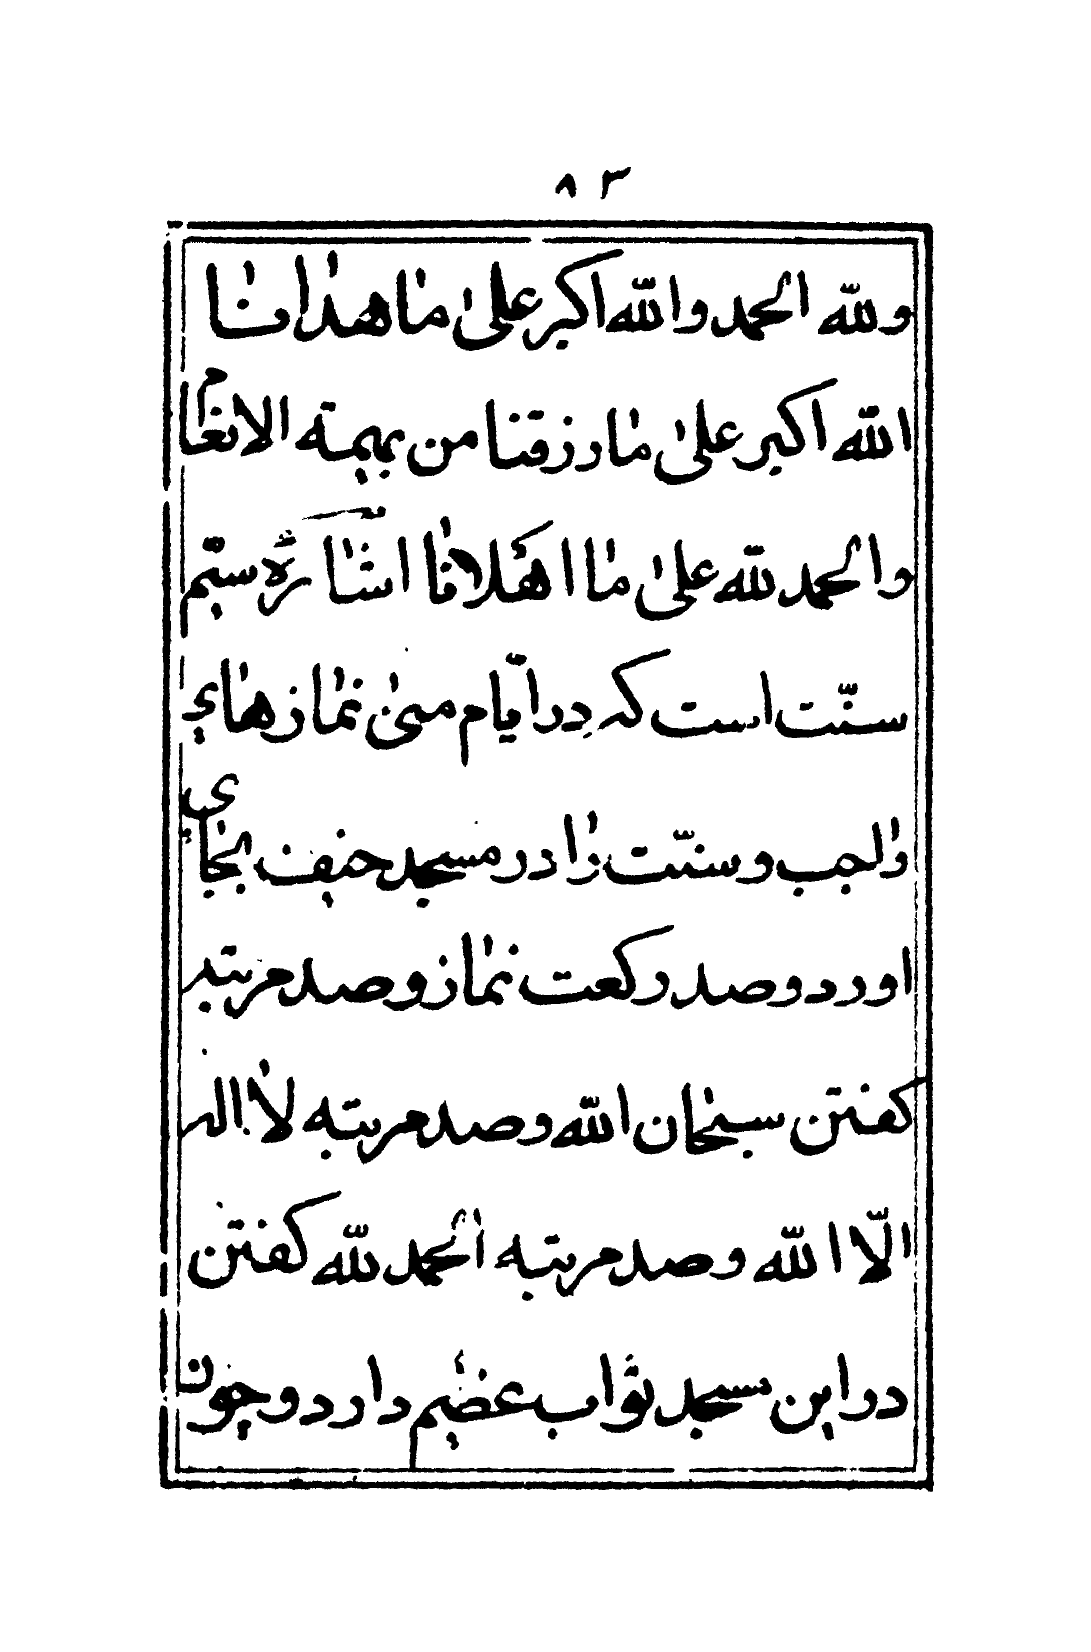 ۸۳
ولله الحمد والله اكبر على ما هدانا
الله اكبر على ما رزقنا من بهيمة الانعام
والحمد لله على ما اشاره سيّم
سنّت است كه در ايّام منى نمازهاي
واجب و سنّت را در مسجد خيف بجاي
اورد و صد ركعت نماز و صد مرتبه
كفتن سبحان الله و صد مرتبه لا اله
الّا الله و صد مرتبه الحمد لله كفتن
در اين مسجد ثواب عضيم دارد و چون